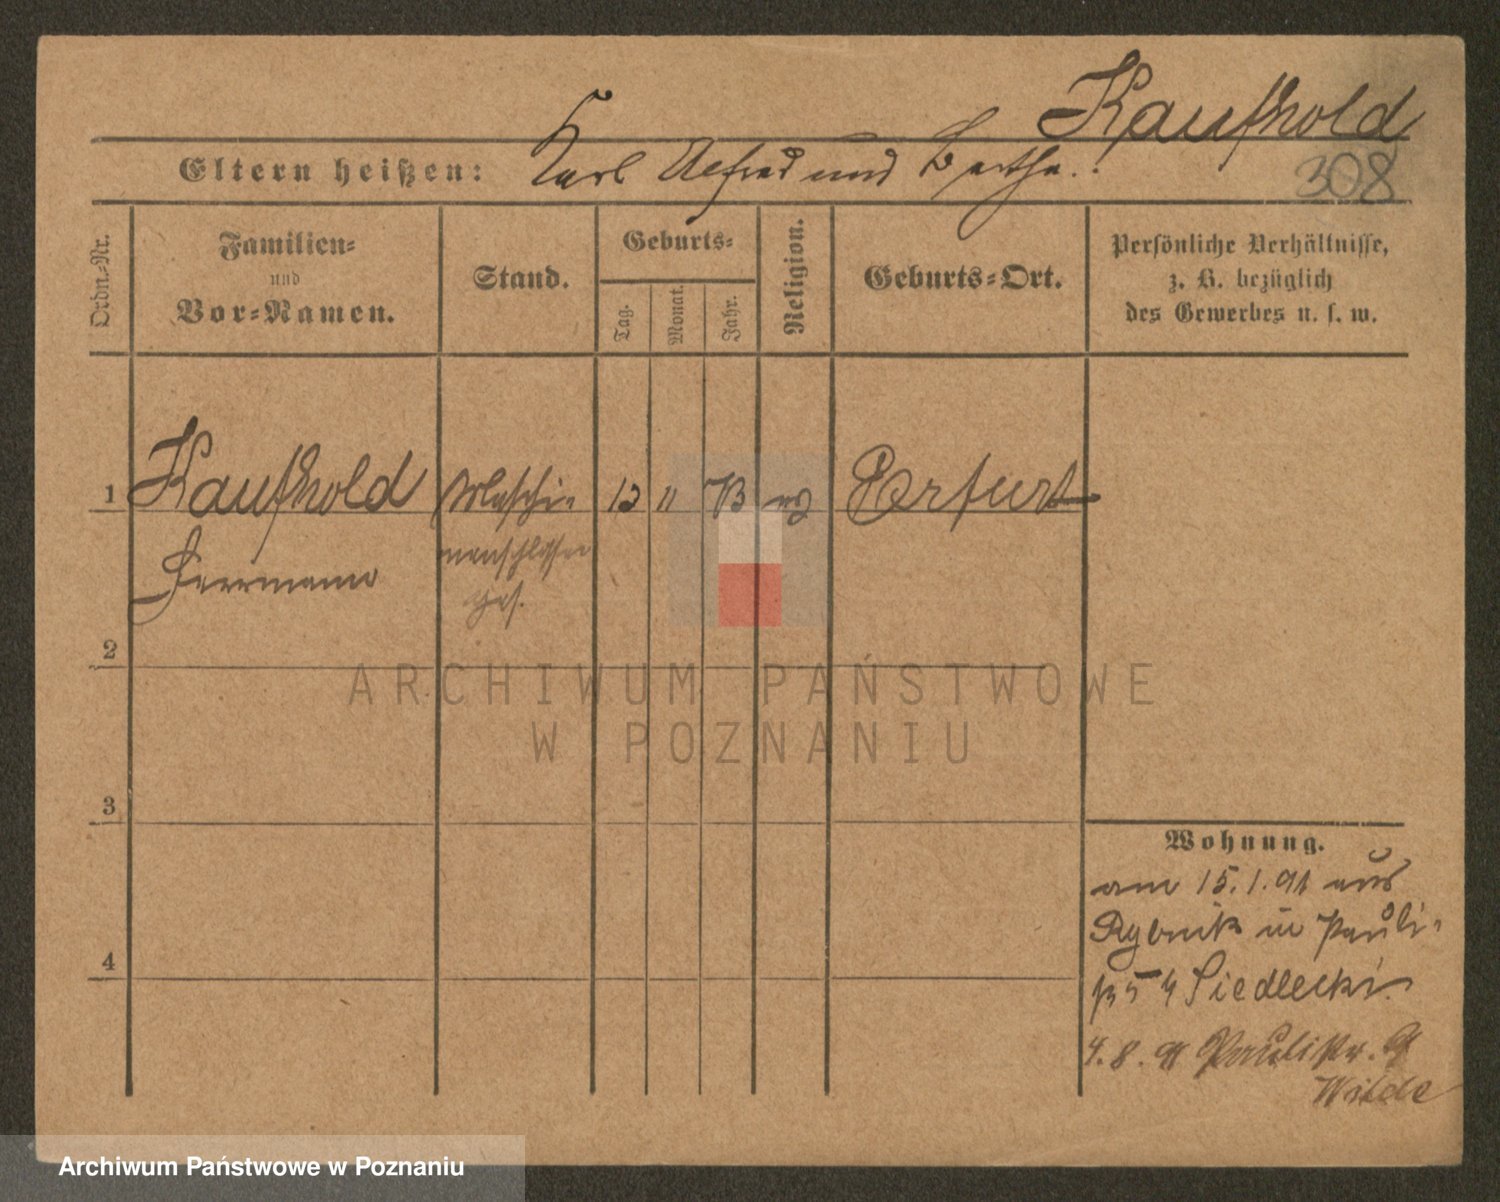 Kaufhold
Eltern heißen: Karl Alfred und Bertha.
308
Ordn.-Nr.
Familien-
und
Vor-Namen.
Stand.
Geburts-
Tag.
Monat.
Jahr.
Religion.
Geburts-Ort.
Persönliche Verhältnisse,
z. B. bezüglich
des Gewerbes u. s. w.
1 Kaufhold Maschi- 12 11 73 ev Erfurt
nenschlosser
Herrmann
ges.
2
3
4
Wohnung.
am 15.1.91 aus
Rybnik in Pauli-
Siedlecki.
4.8.91 Paulistr. 9
Wilda
ARCHIWUM PAŃSTWOWE
W POZNANIU
Archiwum Państwowe w Poznaniu